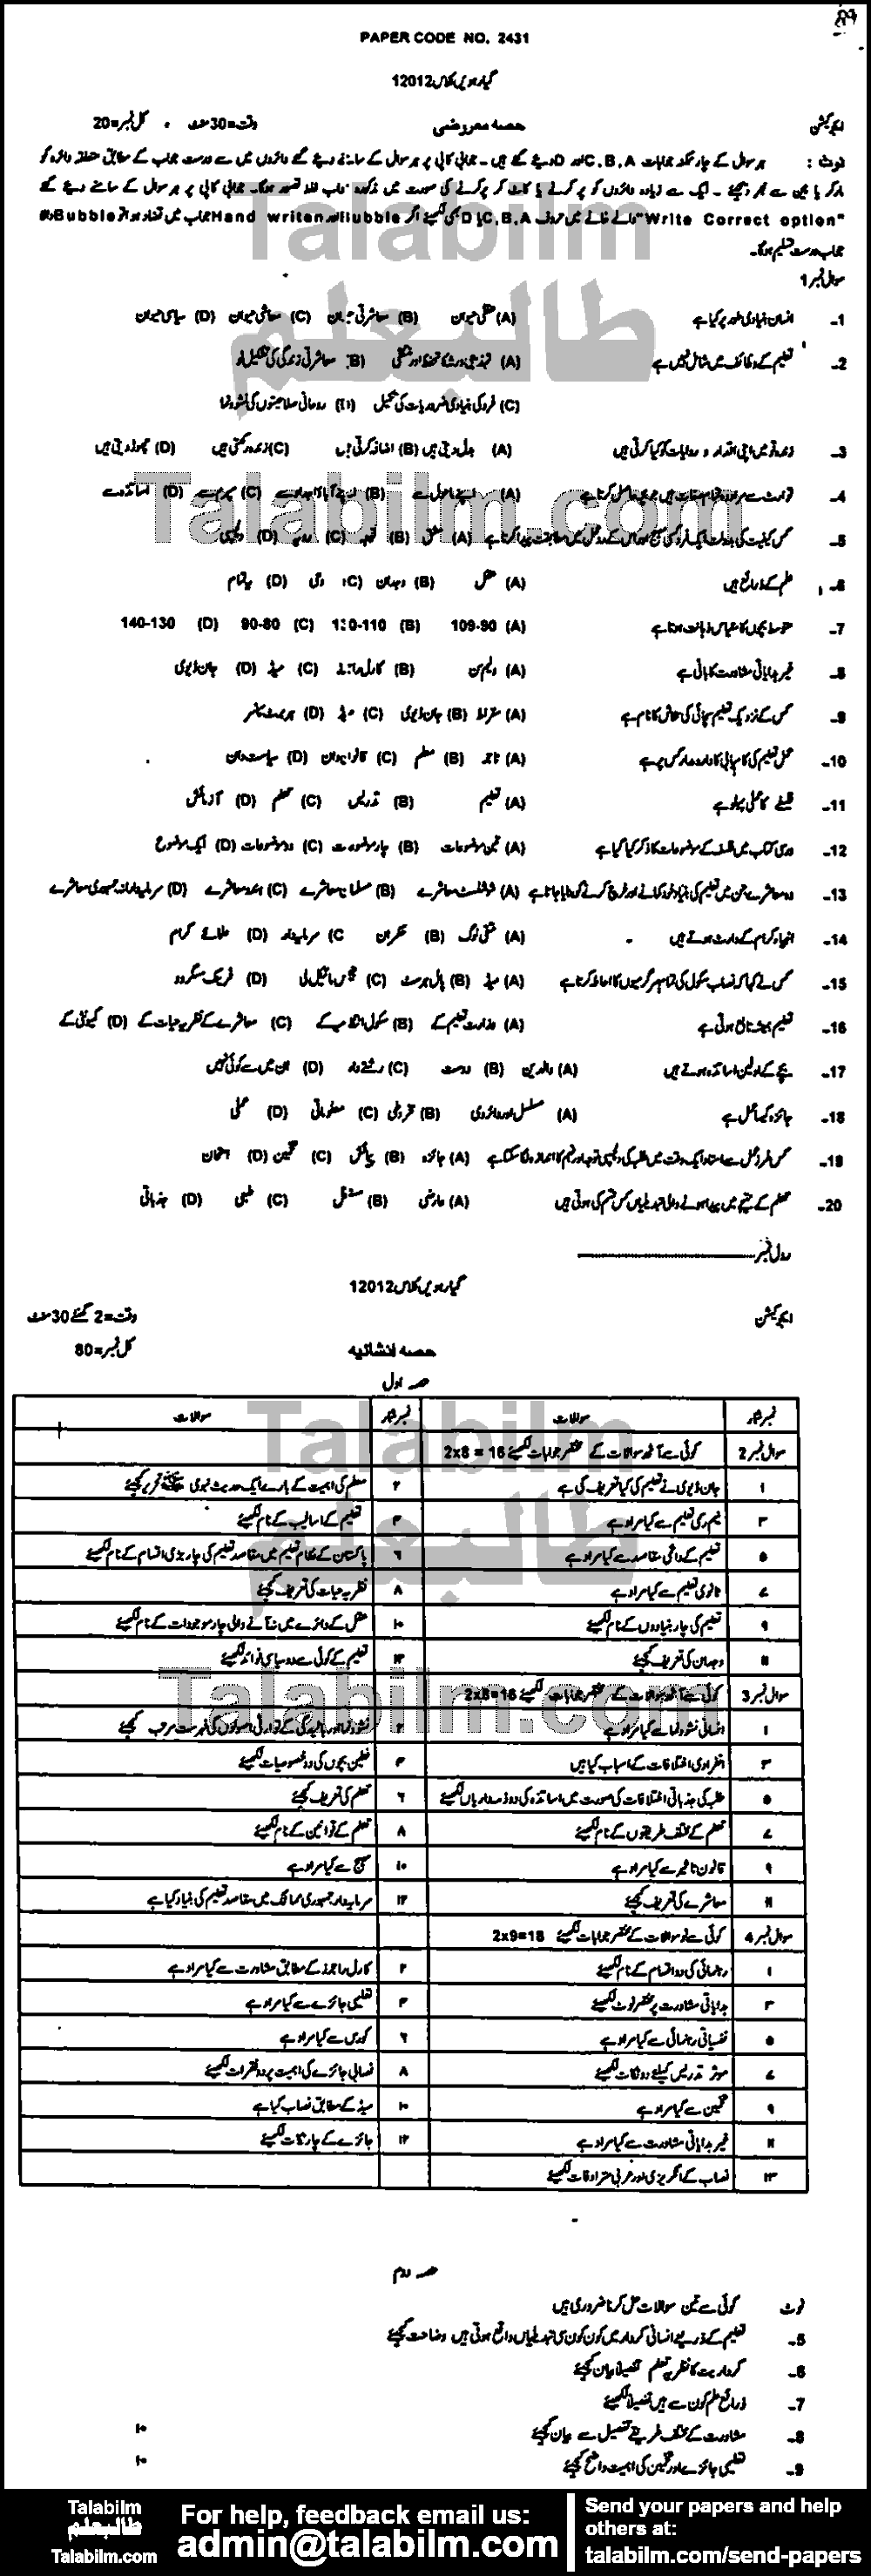 89
PAPER CODE NO. 2431
گیارہویں کلاس 12012
ایجوکیشن حصہ معروضی وقت=30 منٹ کل نمبر=20
نوٹ: ہر سوال کے چار ممکنہ جوابات C,B,A اور D دیئے گئے ہیں۔ جوابی کاپی پر ہر سوال کے سامنے دیئے گئے دائروں میں سے درست جواب کے مطابق متعلقہ دائرہ کو
مارکر یا پین سے بھر دیجئے۔ ایک سے زیادہ دائروں کو پر کرنے یا کاٹ کر پر کرنے کی صورت میں مذکورہ جواب غلط تصور ہوگا۔ جوابی کاپی پر ہر سوال کے سامنے دیئے گئے
"Write Correct option" والے خانے میں حروف C,B,A یا D بھی لکھیئے اگر Bubble اور Hand writen جواب میں تضاد ہو تو Bubble والا
جواب درست تسلیم ہوگا۔
سوال نمبر 1
1- انسان بنیادی طور پر کیا ہے (A) عقلی حیوان (B) معاشرتی حیوان (C) معاشی حیوان (D) سیاسی حیوان
2- تعلیم کے وظائف میں شامل نہیں ہے (A) تہذیبی ورثہ کا تحفظ اور منتقلی (B) معاشرتی زندگی کی تشکیل نو
(C) فرد کی بنیادی ضروریات کی تکمیل (D) روحانی صلاحیتوں کی نشوونما
3- زندہ قومیں اپنی اقدار و روایات کو کیا کرتی ہیں (A) بدل دیتی ہیں (B) اضافہ کرتی ہیں (C) زندہ رکھتی ہیں (D) چھوڑ دیتی ہیں
4- توارث سے مراد وہ تمام صفات ہیں جو بچہ حاصل کرتا ہے (A) اپنے ماحول سے (B) اپنے آباؤ اجداد سے (C) ہمسر سے (D) اساتذہ سے
5- (A) مشق (B) توجہ (C) رویہ (D) دلچسپی
6- علم کے ذرائع ہیں (A) عقل (B) وجدان (C) وحی (D) یہ تمام
7- متوسط بچوں کا مقیاس ذہانت ہوتا ہے (A) 109-90 (B) 130-110 (C) 90-80 (D) 140-130
8- غیر ہدایاتی مشاورت کا بانی ہے (A) ولیم سن (B) کارل راجرز (C) میڈ (D) جان ڈیوی
9- کس کے نزدیک تعلیم سچائی کی تلاش کا نام ہے (A) سقراط (B) جان ڈیوی (C) میڈ (D) ہربرٹ سپنسر
10- عمل تعلیم کی کامیابی کا دارومدار کس پر ہے (A) تاجر (B) معلم (C) قانون دان (D) سیاست دان
11- فلسفے کا عملی پہلو ہے (A) تعلیم (B) تدریس (C) تعلم (D) آزمائش
12- درسی کتاب میں فلسفہ کے موضوعات کا ذکر کیا گیا ہے (A) تین موضوعات (B) چار موضوعات (C) دو موضوعات (D) ایک موضوع
13- وہ معاشرے جن میں تعلیم کی بنیاد خود کمانے اور خرچ کرنے کو بنایا جاتا ہے (A) سوشلسٹ معاشرے (B) مسلمان معاشرے (C) ہندو معاشرے (D) سرمایہ دارانہ جمہوری معاشرے
14- انبیاء کرام کے وارث ہوتے ہیں (A) متقی لوگ (B) حکمران (C) سرمایہ دار (D) علمائے کرام
15- کس نے کہا کہ نصاب سکول کی تمام سرگرمیوں کا احاطہ کرتا ہے (A) میڈ (B) پال ہرسٹ (C) مائیکل لی (D) فرینک مسگرود
16- تعلیم ہمیشہ تابع ہوتی ہے (A) وزارت تعلیم کے (B) سکول انتظامیہ کے (C) معاشرے کے نظریہ حیات کے (D) کمیونٹی کے
17- بچے کے اولین اساتذہ ہوتے ہیں (A) والدین (B) دوست (C) رشتے دار (D) ان میں سے کوئی نہیں
18- جائزہ کیا عمل ہے (A) مسلسل اور دائروی (B) تفریطی (C) معلوماتی (D) عملی
19- کس طرز عمل سے استاد ایک وقت میں طلبہ کی دلچسپی توجہ اور فہم کا اندازہ لگا سکتا ہے (A) جائزہ (B) پیمائش (C) تعین (D) امتحان
20- تعلم کے نتیجے میں پیدا ہونے والی تبدیلیاں کس قسم کی ہوتی ہیں (A) عارضی (B) مستقل (C) طبعی (D) جذباتی
رول نمبر
گیارہویں کلاس 12012
ایجوکیشن وقت=2 گھنٹے 30 منٹ
حصہ انشائیہ کل نمبر=80
حصہ اول
نمبر شمار سوالات نمبر شمار سوالات
سوال نمبر 2 کوئی سے آٹھ سوالات کے مختصر جوابات لکھیئے 2x8 = 16
۱ جان ڈیوی نے تعلیم کی کیا تعریف کی ہے ۲ معلم کی اہمیت کے بارے ایک حدیث نبوی ﷺ تحریر کیجئے
۳ نیم رسمی تعلیم سے کیا مراد ہے ۴ تعلیم کے اسالیب کے نام لکھیئے
۵ تعلیم کے داخلی مقاصد سے کیا مراد ہے ۶ پاکستان کے نظام تعلیم میں مقاصد تعلیم کی چار بڑی اقسام کے نام لکھیئے
۷ ثانوی تعلیم سے کیا مراد ہے ۸ نظریہ حیات کی تعریف کیجئے
۹ تعلیم کی چار بنیادوں کے نام لکھیئے ۱۰ عقل کے دائرے میں نہ آنے والی چار موجودات کے نام لکھیئے
۱۱ وجدان کی تعریف کیجئے ۱۲ تعلیم کے کوئی سے دو سیاسی فوائد لکھیئے
سوال نمبر 3 کوئی سے آٹھ سوالات کے مختصر جوابات لکھیئے 2x8=16
۱ انسانی نشوونما سے کیا مراد ہے ۲ نشوونما اور بالیدگی کے توارثی اصولوں کی فہرست مرتب کیجئے
۳ انفرادی اختلافات کے اسباب کیا ہیں ۴ فطین بچوں کی دو خصوصیات لکھیئے
۵ طلبہ کی جذباتی اختلافات کی صورت میں اساتذہ کی دو ذمہ داریاں لکھیئے ۶ تعلم کی تعریف کیجئے
۷ تعلم کے مختلف طریقوں کے نام لکھیئے ۸ تعلم کے قوانین کے نام لکھیئے
۹ قانون تاثیر سے کیا مراد ہے ۱۰ ہیج سے کیا مراد ہے
۱۱ معاشرے کی تعریف کیجئے ۱۲ سرمایہ دار جمہوری ممالک میں مقاصد تعلیم کی بنیاد کیا ہے
سوال نمبر 4 کوئی سے نو سوالات کے مختصر جوابات لکھیئے 2x9=18
۱ رہنمائی کی دو اقسام کے نام لکھیئے ۲ کارل راجرز کے مطابق مشاورت سے کیا مراد ہے
۳ ہدایاتی مشاورت پر مختصر نوٹ لکھیئے ۴ تعلیمی جائزے سے کیا مراد ہے
۵ نفسیاتی رہنمائی سے کیا مراد ہے ۶ کورس سے کیا مراد ہے
۷ موثر تدریس کیلئے دو نکات لکھیئے ۸ نصابی جائزے کی اہمیت پر دو فقرات لکھیئے
۹ تعین سے کیا مراد ہے ۱۰ میڈ کے مطابق نصاب کیا ہے
۱۱ غیر ہدایاتی مشاورت سے کیا مراد ہے ۱۲ جائزے کے چار نکات لکھیئے
۱۳ نصاب کے انگریزی اور عربی مترادفات لکھیئے
حصہ دوم
نوٹ کوئی سے تین سوالات حل کرنا ضروری ہیں
5- تعلیم کے ذریعے انسانی کردار میں کون کون سی تبدیلیاں واقع ہوتی ہیں وضاحت کیجئے
6- کرداریت کا نظریہ تعلم تفصیلاً بیان کیجئے
7- ذرائع علم کون سے ہیں تفصیلاً لکھیئے
8- مشاورت کے مختلف طریقے تفصیل سے بیان کیجئے ۱۰
9- تعلیمی جائزے اور تعین کی اہمیت واضح کیجئے ۱۰
Talabilm
طالبعلم
Talabilm.com
For help, feedback email us:
admin@talabilm.com
Send your papers and help
others at:
talabilm.com/send-papers